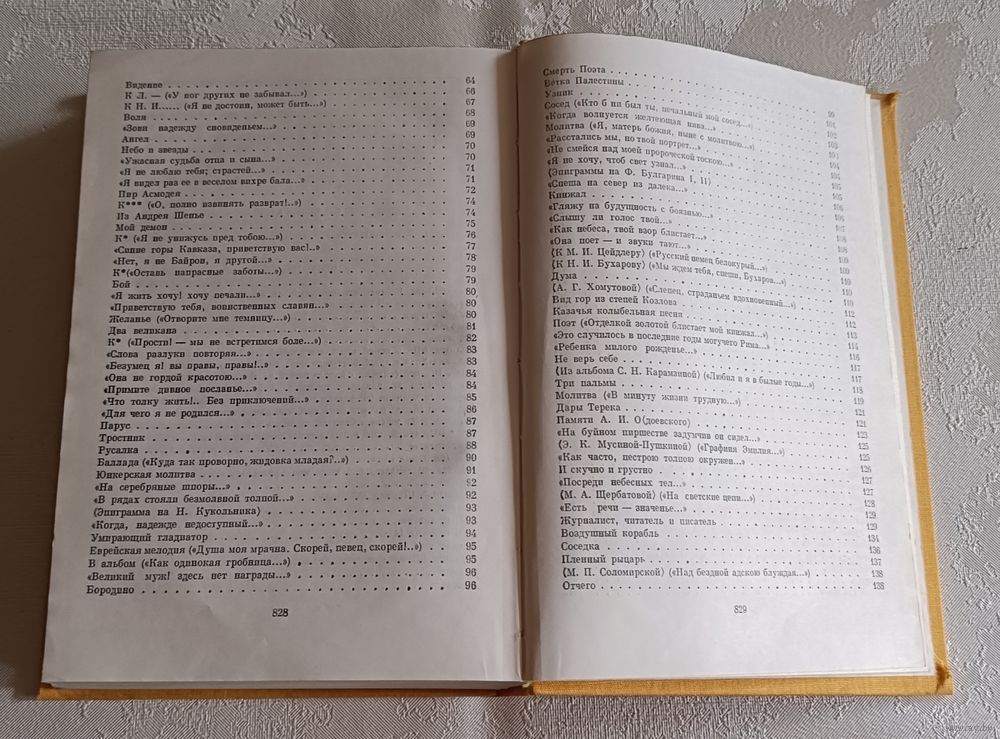 Видение 64
К Л. — («У ног других не забывал...») 66
К Н. И...... («Я не достоин, может быть...») 67
Воля 68
«Зови надежду сновиденьем...» 69
Ангел 69
Небо и звезды 70
«Ужасная судьба отца и сына...» 70
«Я не люблю тебя; страстей...» 71
«Я видел раз ее в веселом вихре бала...» 71
Пир Асмодея 72
К*** («О, полно извинять разврат!..») 74
Из Андрея Шенье 74
Мой демон 75
К* («Я не унижусь пред тобою...») 76
«Синие горы Кавказа, приветствую вас!..» 77
«Нет, я не Байрон, я другой...» 78
К*(«Оставь напрасные заботы...») 79
Бой 79
«Я жить хочу! хочу печали...» 80
«Приветствую тебя, воинственных славян...» 80
Желанье («Отворите мне темницу...») 80
Два великана 81
К* («Прости! — мы не встретимся боле...») 82
«Слова разлуки повторяя...» 83
«Безумец я! вы правы, правы!..» 83
«Она не гордой красотою...» 84
«Примите дивное посланье...» 84
«Что толку жить!.. Без приключений...» 85
«Для чего я не родился...» 86
Парус 87
Тростник 87
Русалка 88
Баллада («Куда так проворно, жидовка младая?..») 90
Юнкерская молитва 91
«На серебряные шпоры...» 92
«В рядах стояли безмолвной толпой...» 92
⟨Эпиграмма на Н. Кукольника⟩ 93
«Когда, надежде недоступный...» 93
Умирающий гладиатор 94
Еврейская мелодия («Душа моя мрачна. Скорей, певец, скорей!..») 95
В альбом («Как одинокая гробница...») 95
«Великий муж! здесь нет награды...» 96
Бородино 96
828
Смерть Поэта
Ветка Палестины
Узник
Сосед («Кто б ни был ты, печальный мой сосед...»)
«Когда волнуется желтеющая нива...»
Молитва («Я, матерь божия, ныне с молитвою...»)
«Расстались мы, но твой портрет...»
«Не смейся над моей пророческой тоскою...»
«Я не хочу, чтоб свет узнал...»
⟨Эпиграммы на Ф. Булгарина I, II⟩
«Спеша на север из далека...»
Кинжал
«Гляжу на будущность с боязнью...»
«Слышу ли голос твой...»
«Как небеса, твой взор блистает...»
«Она поет — и звуки тают...»
⟨К М. И. Цейдлеру⟩ («Русский немец белокурый...»)
⟨К Н. И. Бухарову⟩ («Мы ждем тебя, спеши, Бухаров...»)
Дума 110
⟨А. Г. Хомутовой⟩ («Слепец, страданьем вдохновенный...») 112
Вид гор из степей Козлова 112
Казачья колыбельная песня 113
Поэт («Отделкой золотой блистает мой кинжал...») 114
«Это случилось в последние годы могучего Рима...» 116
«Ребенка милого рожденье...» 117
Не верь себе 117
⟨Из альбома С. Н. Карамзиной⟩ («Любил и я в былые годы...») 118
Три пальмы 119
Молитва («В минуту жизни трудную...») 121
Дары Терека 121
Памяти А. И. О⟨доевского⟩ 123
«На буйном пиршестве задумчив он сидел...» 125
⟨Э. К. Мусиной-Пушкиной⟩ («Графиня Эмилия...») 125
«Как часто, пестрою толпою окружен...» 126
И скучно и грустно 127
«Посреди небесных тел...» 127
⟨М. А. Щербатовой⟩ («На светские цепи...») 128
«Есть речи — значенье...» 129
Журналист, читатель и писатель 129
Воздушный корабль 134
Соседка 136
Пленный рыцарь 137
⟨М. П. Соломирской⟩ («Над бездной адскою блуждая...») 138
Отчего 138
829